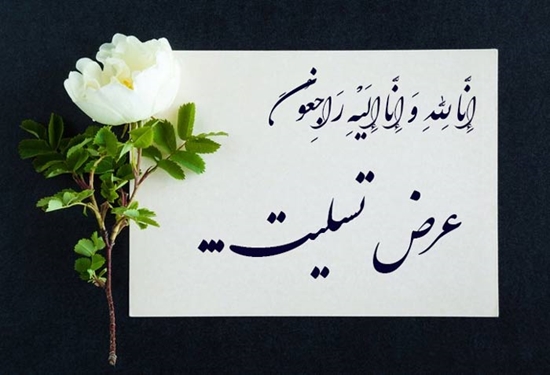 إِنَّا لِلّهِ وَ إِنَّا إِلَيْهِ رَاجِعونَ
عرض تسلیت...